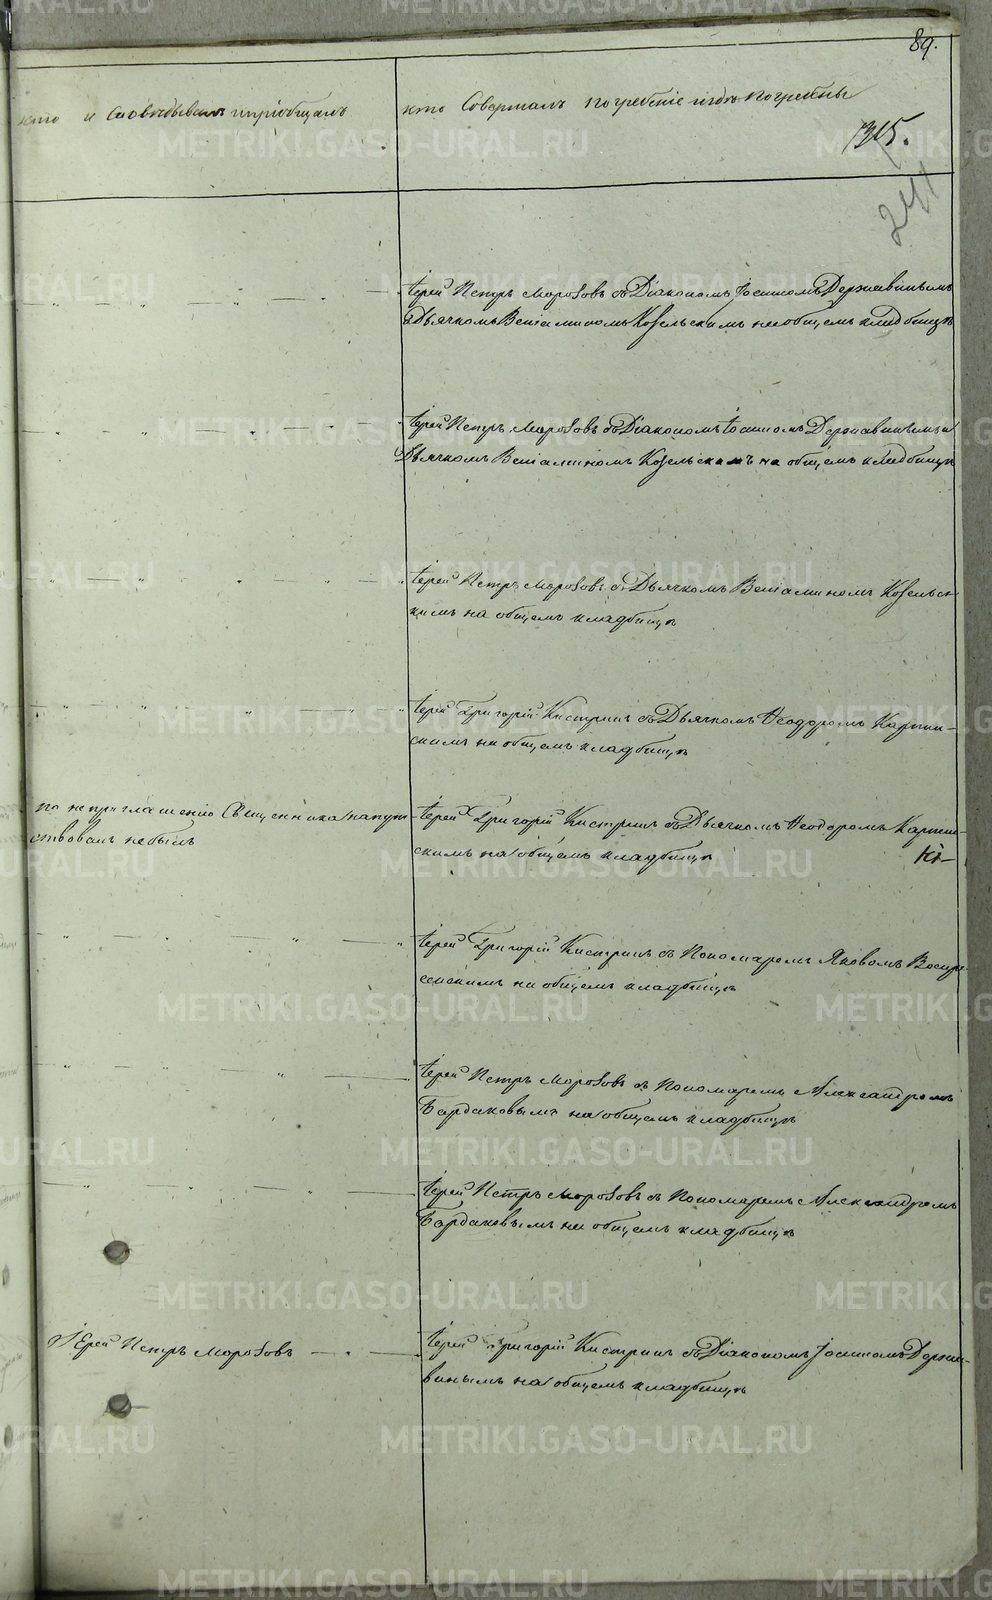 89.
кто и Исповѣдывалъ и пріобщалъ
кто Совершалъ погребеніе и гдѣ погребены
1315.
241
Іерей Петръ Морозовъ съ Діакономъ Іосифомъ Державинымъ
и Дьячкомъ Веніаминомъ Козельскимъ на общемъ кладбищѣ
Іерей Петръ Морозовъ съ Діакономъ Іосифомъ Державинымъ и
Дьячкомъ Веніаминомъ Козельскимъ на общемъ кладбищѣ
Іерей Петръ Морозовъ съ Дьячкомъ Веніаминомъ Козельс-
кимъ на общемъ кладбищѣ
Іерей Григорій Кистринъ съ Дьячкомъ Ѳеодоромъ Карпин-
скимъ на общемъ кладбищѣ
по неприглашенію Священника напут
ствованъ небылъ
Іерей Григорій Кистринъ съ Дьячкомъ Ѳеодоромъ Карпин-
скимъ на общемъ кладбищѣ
Іерей Григорій Кистринъ съ Пономаремъ Яковомъ Воскре-
сенскимъ на общемъ кладбищѣ
Іерей Петръ Морозовъ съ Пономаремъ Александромъ
Бардаковымъ на общемъ кладбищѣ
Іерей Петръ Морозовъ съ Пономаремъ Александромъ
Бардаковымъ на общемъ кладбищѣ
Іерей Петръ Морозовъ
Іерей Григорій Кистринъ съ Діакономъ Іосифомъ Держа-
винымъ на общемъ кладбищѣ
METRIKI.GASO-URAL.RU